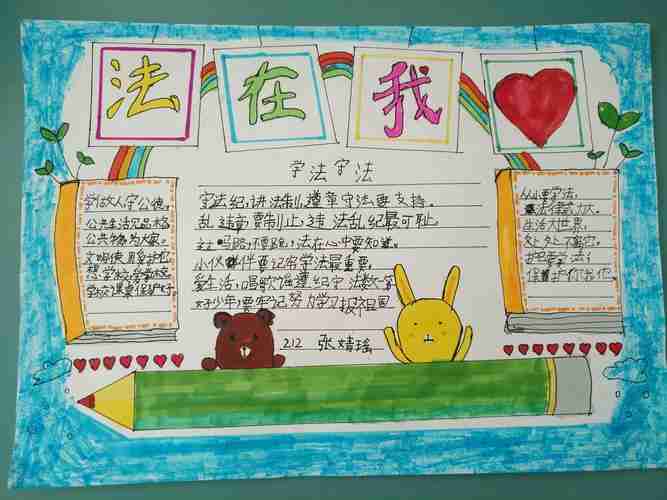 法在我
学法守法
守法纪,讲法制,遵章守法要支持。
乱 要制止,违法乱纪最可耻,
马路,不要 ,法在心中要知道。
小伙伴要记牢学法最重要,
爱生活,唱歌谣遵纪守法
好少年,要牢记努力学习报祖国
212 张婧瑶
学做人,守公德,
公共生活
公共 为大家,
文明使用
想学校,爱学校
学校课桌保护好
从小要学法,
法律 力大,
生活大世界,
处处不离它,
学法
保护你我他。